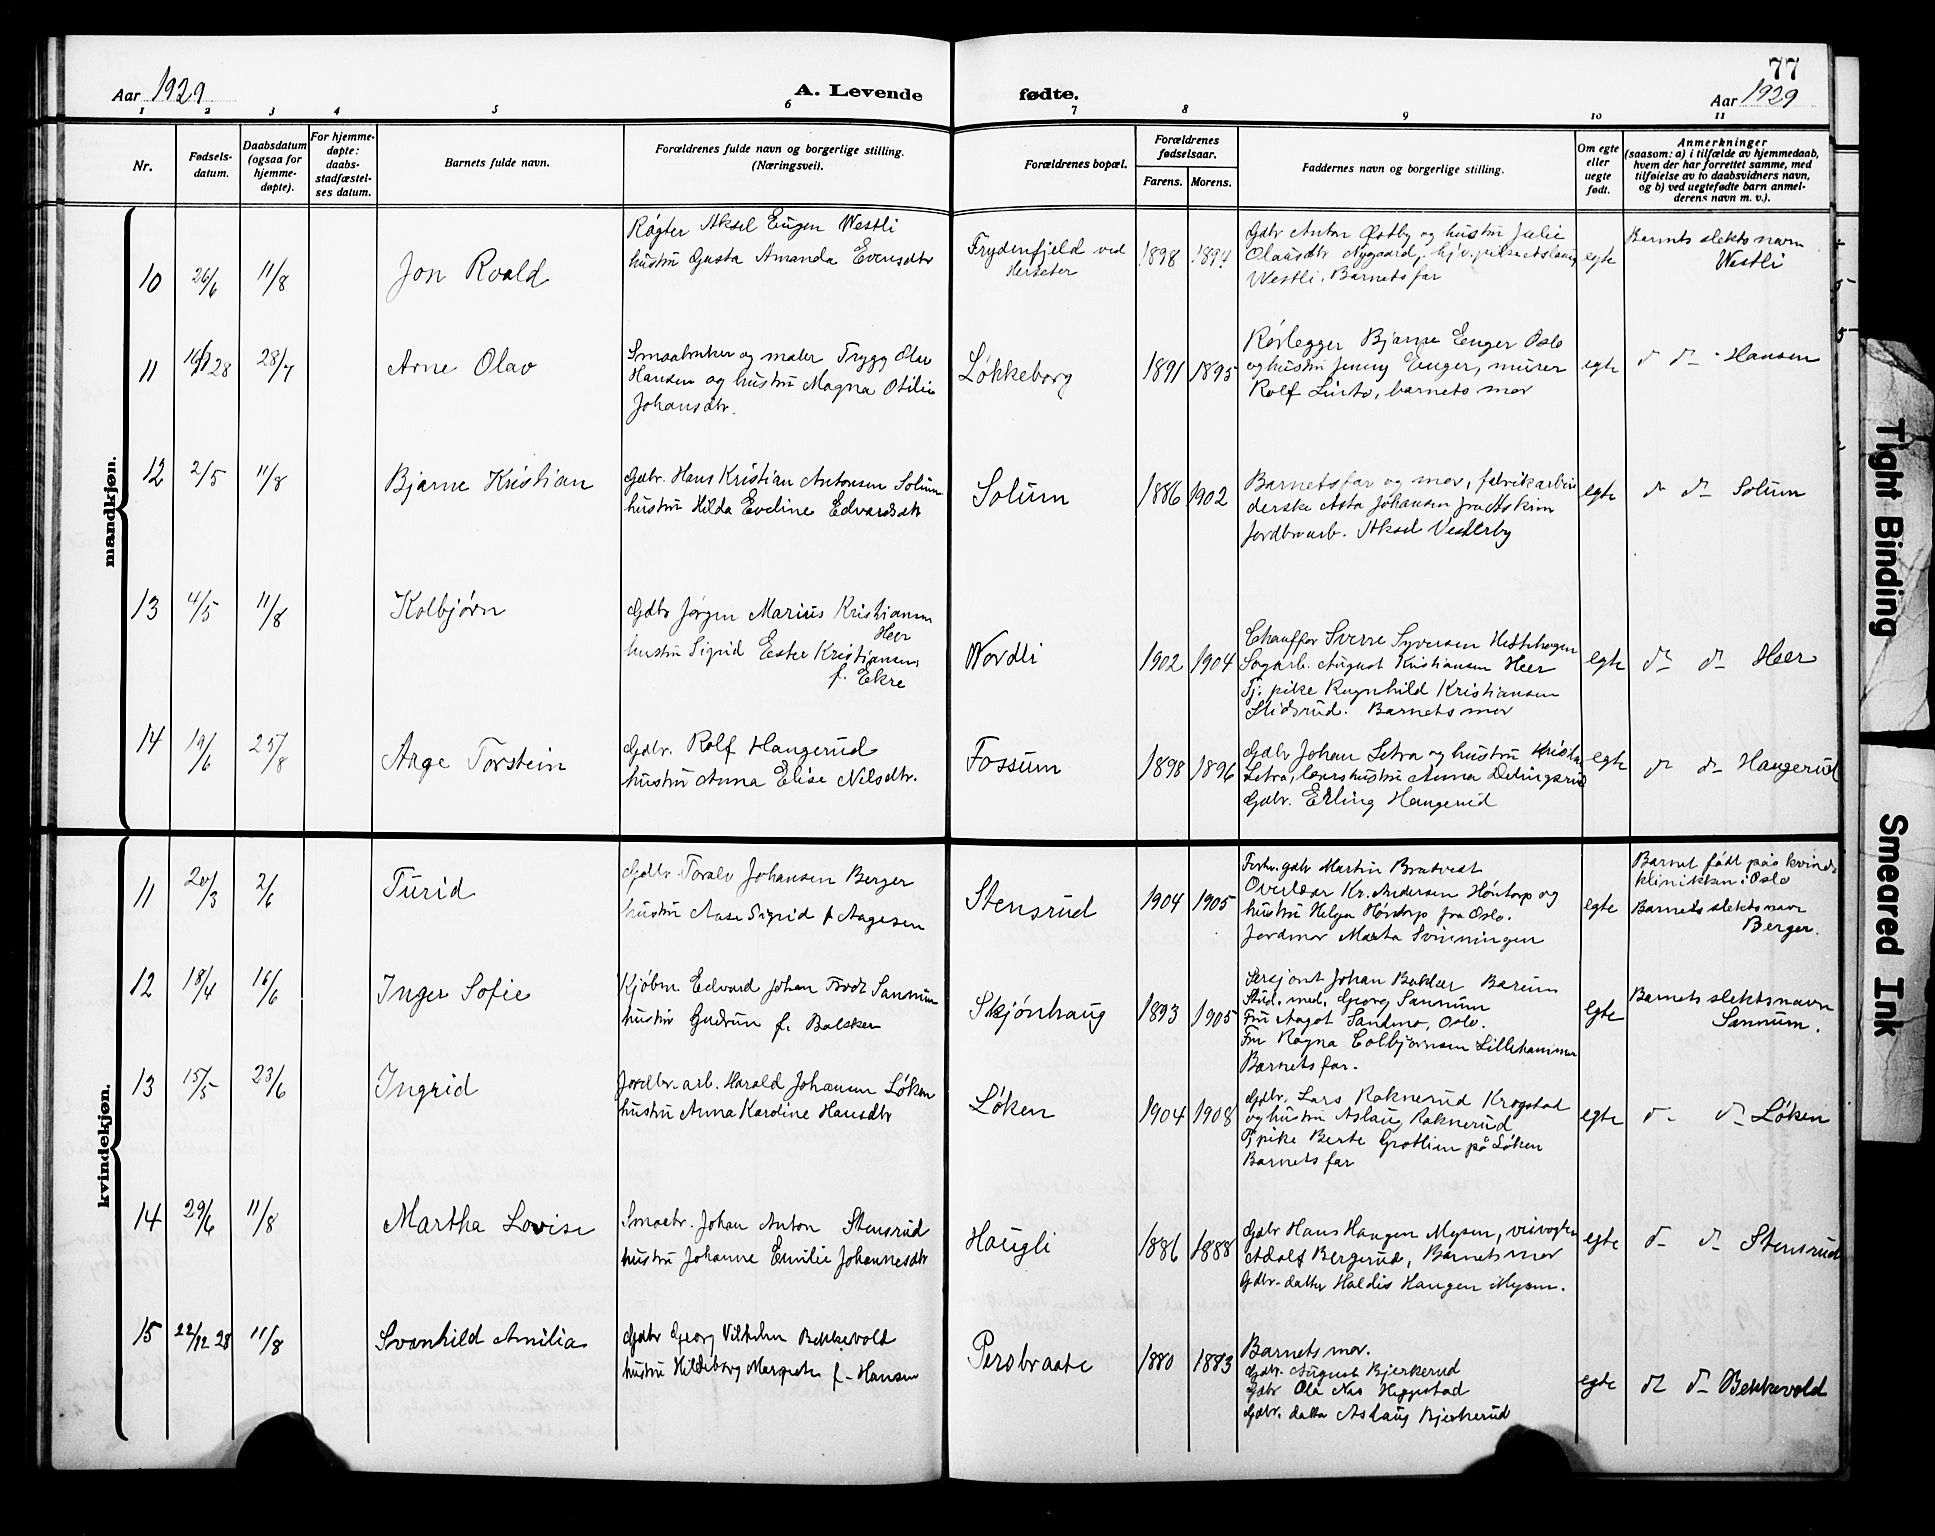 77
Aar 1929
A. Levende fødte.
Aar 1929
1 2 3 4 5 6 7 8 9 10 11
Nr.
Fødsels-
datum.
Daabsdatum
(ogsaa for
hjemme-
døpte).
For hjemme-
døpte:
daabs-
stadfæstel-
ses datum.
Barnets fulde navn.
Forældrenes fulde navn og borgerlige stilling.
(Næringsvei).
Forældrenes bopæl.
Forældrenes
fødselsaar.
Farens. Morens.
Faddernes navn og borgerlige stilling.
Om egte
eller
uegte
født.
Anmerkninger
(saasom: a) i tilfælde av hjemmedaab,
hvem der har forrettet samme, med
tilføielse av to daabsvidners navn,
og b) ved uegtefødte barn anmel-
derens navn m. v.).
mandkjøn.
10 26/6 11/8
Jon Roald
Røgter Aksel Eugen Westli
hustru Gusta Amanda Evensdtr
Frydenfjeld ved
Herseter
1898 1894
Gdbr Anton Østby og hustru Julie
Olausdtr Nygaard, hjv. pike
Westli. Barnets far
egte
Barnets slektsnavn
Westli
11 28 28/7
Arne Olav
Smaabruker og maler Trygv Olav
Hansen og hustru Magna Otilie
Johansdtr.
Løkkeborg
1891 1895
Rørlegger Bjarne Enger Oslo
og hustru Jenny Enger, murer
Rolf Linto, barnets mor
egte
d d - Hansen
12 2/5 11/8
Bjarne Kristian
Gdbr. Hans Kristian Antonsen Solum
hustru Hilda Eveline Edvardsdtr
Solum
1886 1902
Barnets far og mor, fabrikarbei
derske Asta Johansen fra Askim
jordbrarb. Aksel Vesterby
egte
d d - Solum
13 4/5 11/8
Kolbjørn
Gdbr Jørgen Marius Kristiansen
Heer
hustru Sigrid Ester Kristiansen
f. Ekre
Nordli
1902 1904
Chauffør Sverre Syversen
Sagarb. August Kristiansen Heer
Tj. pike Ragnhild Kristiansen
Slidsrud. Barnets mor
egte
d - d - Heer
14 19/6 25/8
Aage Torstein
Gdbr. Rolf Haugerud
hustru Anna Elise Nilsdtr.
Fossum
1898 1896
Gdbr Johan Setra og hustru Krista
Setra, lærerhustru Anna
Gdbr. Erling Haugerud
egte
d d - Haugerud
kvindekjøn.
11 20/3 2/6
Turid
Gdbr. Toralv Johansen Berger
hustru Aase Sigrid f Aagesen
Stensrud
1904 1905
Forh. gdbr Martin Bratvest
Overlær Kr. Andersen Høntorp og
hustru Helga Høntorp fra Oslo.
Jordmor Marta Svinningen
egte
Barnet født på kvinde-
klinikken i Oslo
Barnets slektsnavn
Berger.
12 18/4 16/6
Inger Sofie
Kjøbm. Edvard Johan Sannum
hustru Gudrun f. Bakker
Skjønhaug
1893 1905
Sersjant Johan Bakker Bærum
Stud. med. Georg Sannum
Fru Aagot Sandmo, Oslo.
Fru Ragna Colbjørnsen Lillehammer
Barnets far.
egte
Barnets slektsnavn
Sannum.
13 15/5 23/6
Ingrid
Jordbr. arb. Harald Johansen Løken
hustru Anna Karoline Hansdtr
Løken
1904 1908
Gdbr. Lars Raknerud Krogstad
og hustru Aslaug Raknerud
Tj pike Berte Grotlien på Løken
Barnets far
egte
d - d - Løken
14 29/6 11/8
Martha Lovise
Smaabr. Johan Anton Stensrud
hustru Johanne Emilie Johannesdtr
Haugli
1886 1888
Gdbr Hans Haugen Mysen, veivogter
Adolf Bergerud, Barnets mor
Gdbr-datter Haldis Haugen Mysen.
egte
d - d - Stensrud
15 22/12 28 11/8
Svanhild Amilia
Gdbr Georg Vilhelm Bekkevold
hustru Hildeborg Margrete f - Hansen
Persbraate
1880 1883
Barnets mor.
Gdbr. August Bjerkerud
Gdbr Ola Nas Heggstad
Gdbr. datter Aslaug Bjerkerud
egte
d d - Bekkevold
Tight Binding
Smeared Ink